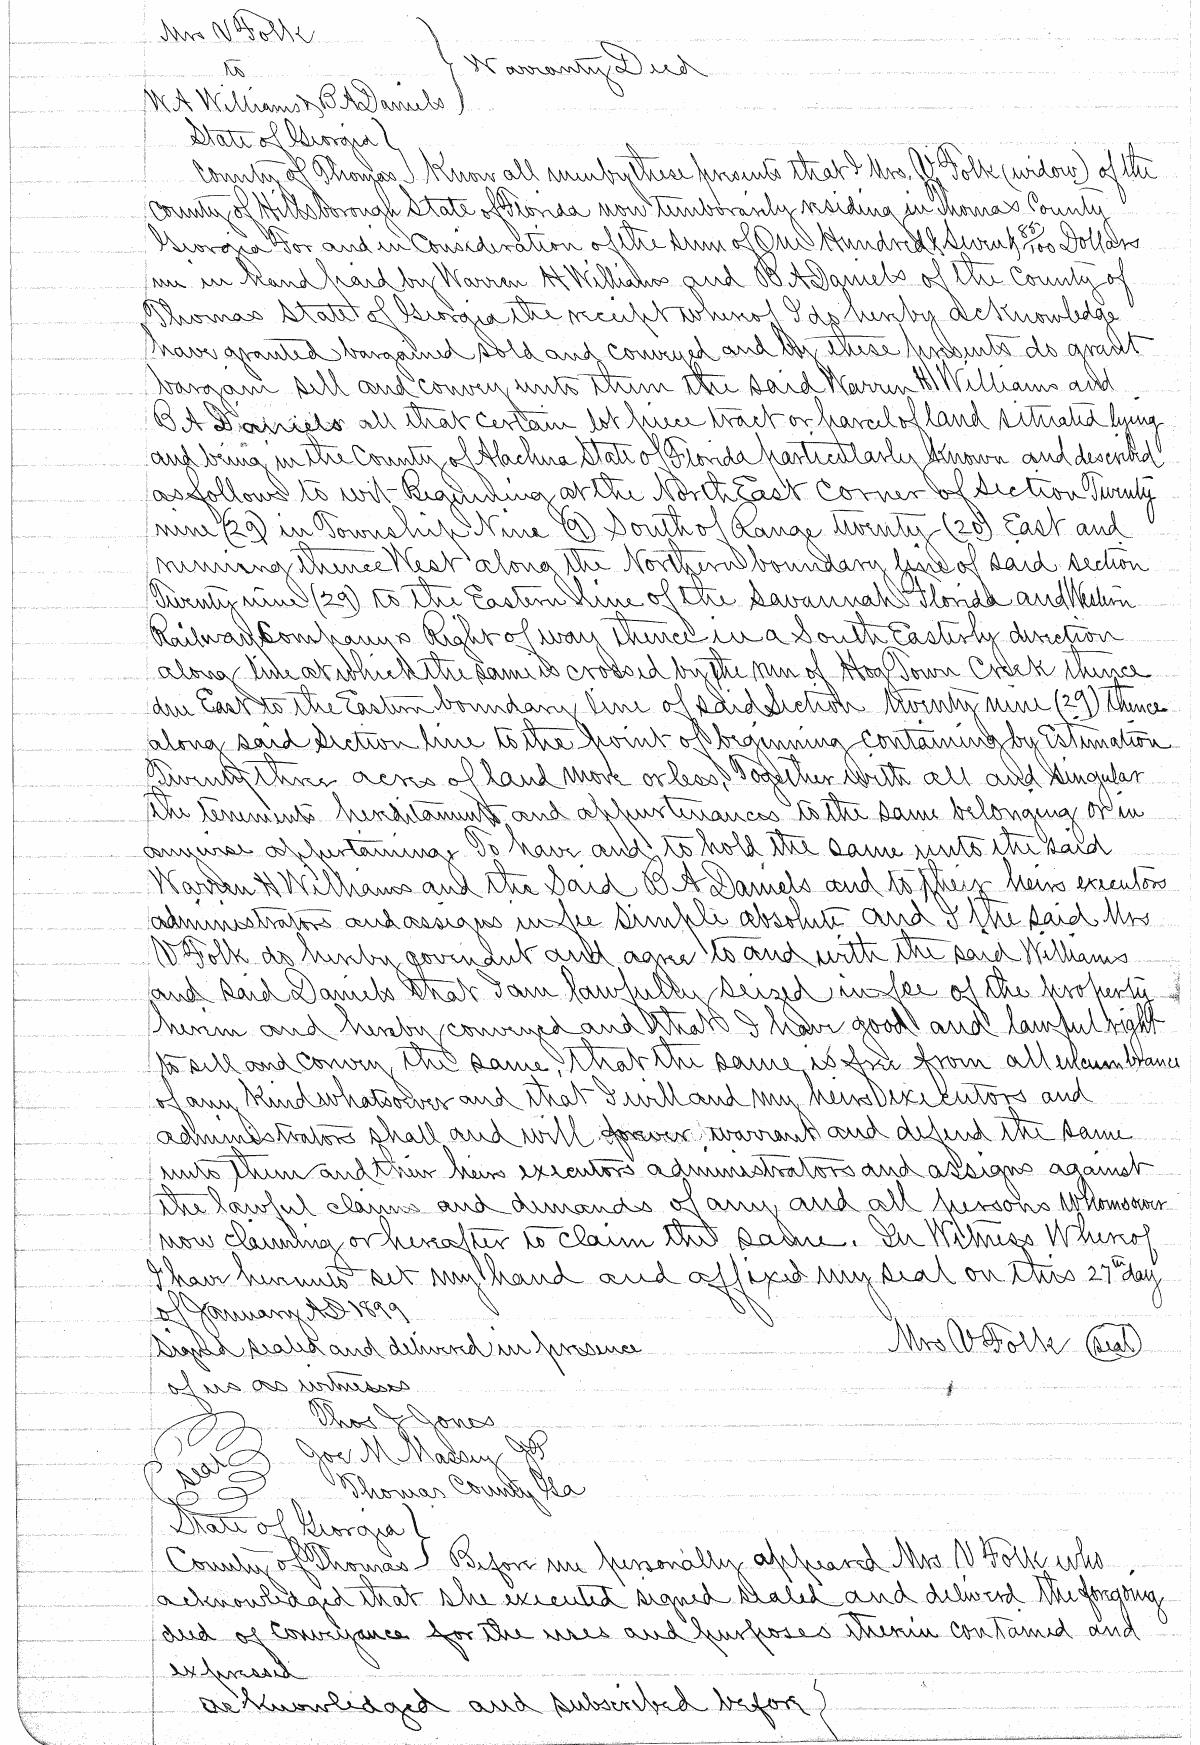 Mrs V Folk
to
Warranty Deed
W A Williams & B A Daniels
State of Georgia
County of Thomas Know all men by these presents that I Mrs. V. Folk (widow) of the
County of Hillsborough State of Florida now temborarily residing in Thomas County
Georgia For and in Consideration of the sum of One Hundred & Seventy /100 Dollars
me in hand paid by Warren H Williams and B A Daniels of the County of
Thomas State of Georgia the receipt whereof I do hereby acknowledge
have granted bargained sold and conveyed and by these presents do grant
bargain sell and convey unto them the said Warren H Williams and
B A Daniels all that certain lot piece tract or parcel of land situated lying
and being in the County of Alachua State of Florida particularly known and described
as follows to wit Beginning at the North East Corner of Section Twenty
nine (29) in Township Nine (9) South of Range twenty (20) East and
running thence West along the Northern boundary line of said section
Twenty nine (29) to the Eastern line of the Savannah Florida and Western
Railway Companys Right of way thence in a South Easterly direction
along line at which the same is crossed by the run of Hog Town Creek thence
due East to the Eastern boundary line of said Section twenty nine (29) thence
along said section line to the point of beginning containing by Estimation
Twenty three acres of land more or less, Together with all and singular
the tenements hereditaments and appurtenances to the same belonging or in
anywise appertaining, To have and to hold the same unto the said
Warren H Williams and the Said B A Daniels and to their heirs executors
administrators and assigns in fee simple absolute and I the said Mrs
V Folk do hereby covendut and agree to and with the said Williams
and said Daniels that I am lawfully seized in fee of the property
herein and hereby conveyed and that I have good and lawful right
to sell and convey the same, that the same is free from all encumbrance
of any kind whatsoever and that I will and my heirs executors and
administrators shall and will forever warrant and defend the same
unto them and their heirs executors administrators and assigns against
the lawful claims and demands of any and all persons Whomsoever
now claiming or hereafter to claim the same. In Witness Whereof
I have hereunto set my hand and affixed my seal on this 27th day
of January AD 1899
Signed sealed and delivered in presence Mrs V Folk (seal)
of us as witnesses
Thos J Jones
seal Joe M Massey JP
Thomas County Ga
State of Georgia
County of Thomas Before me personally appeared Mrs V Folk who
acknowledged that she executed signed sealed and delivered the forgoing
deed of conveyance for the uses and purposes therein contained and
expressed
acknowledged and subscribed before